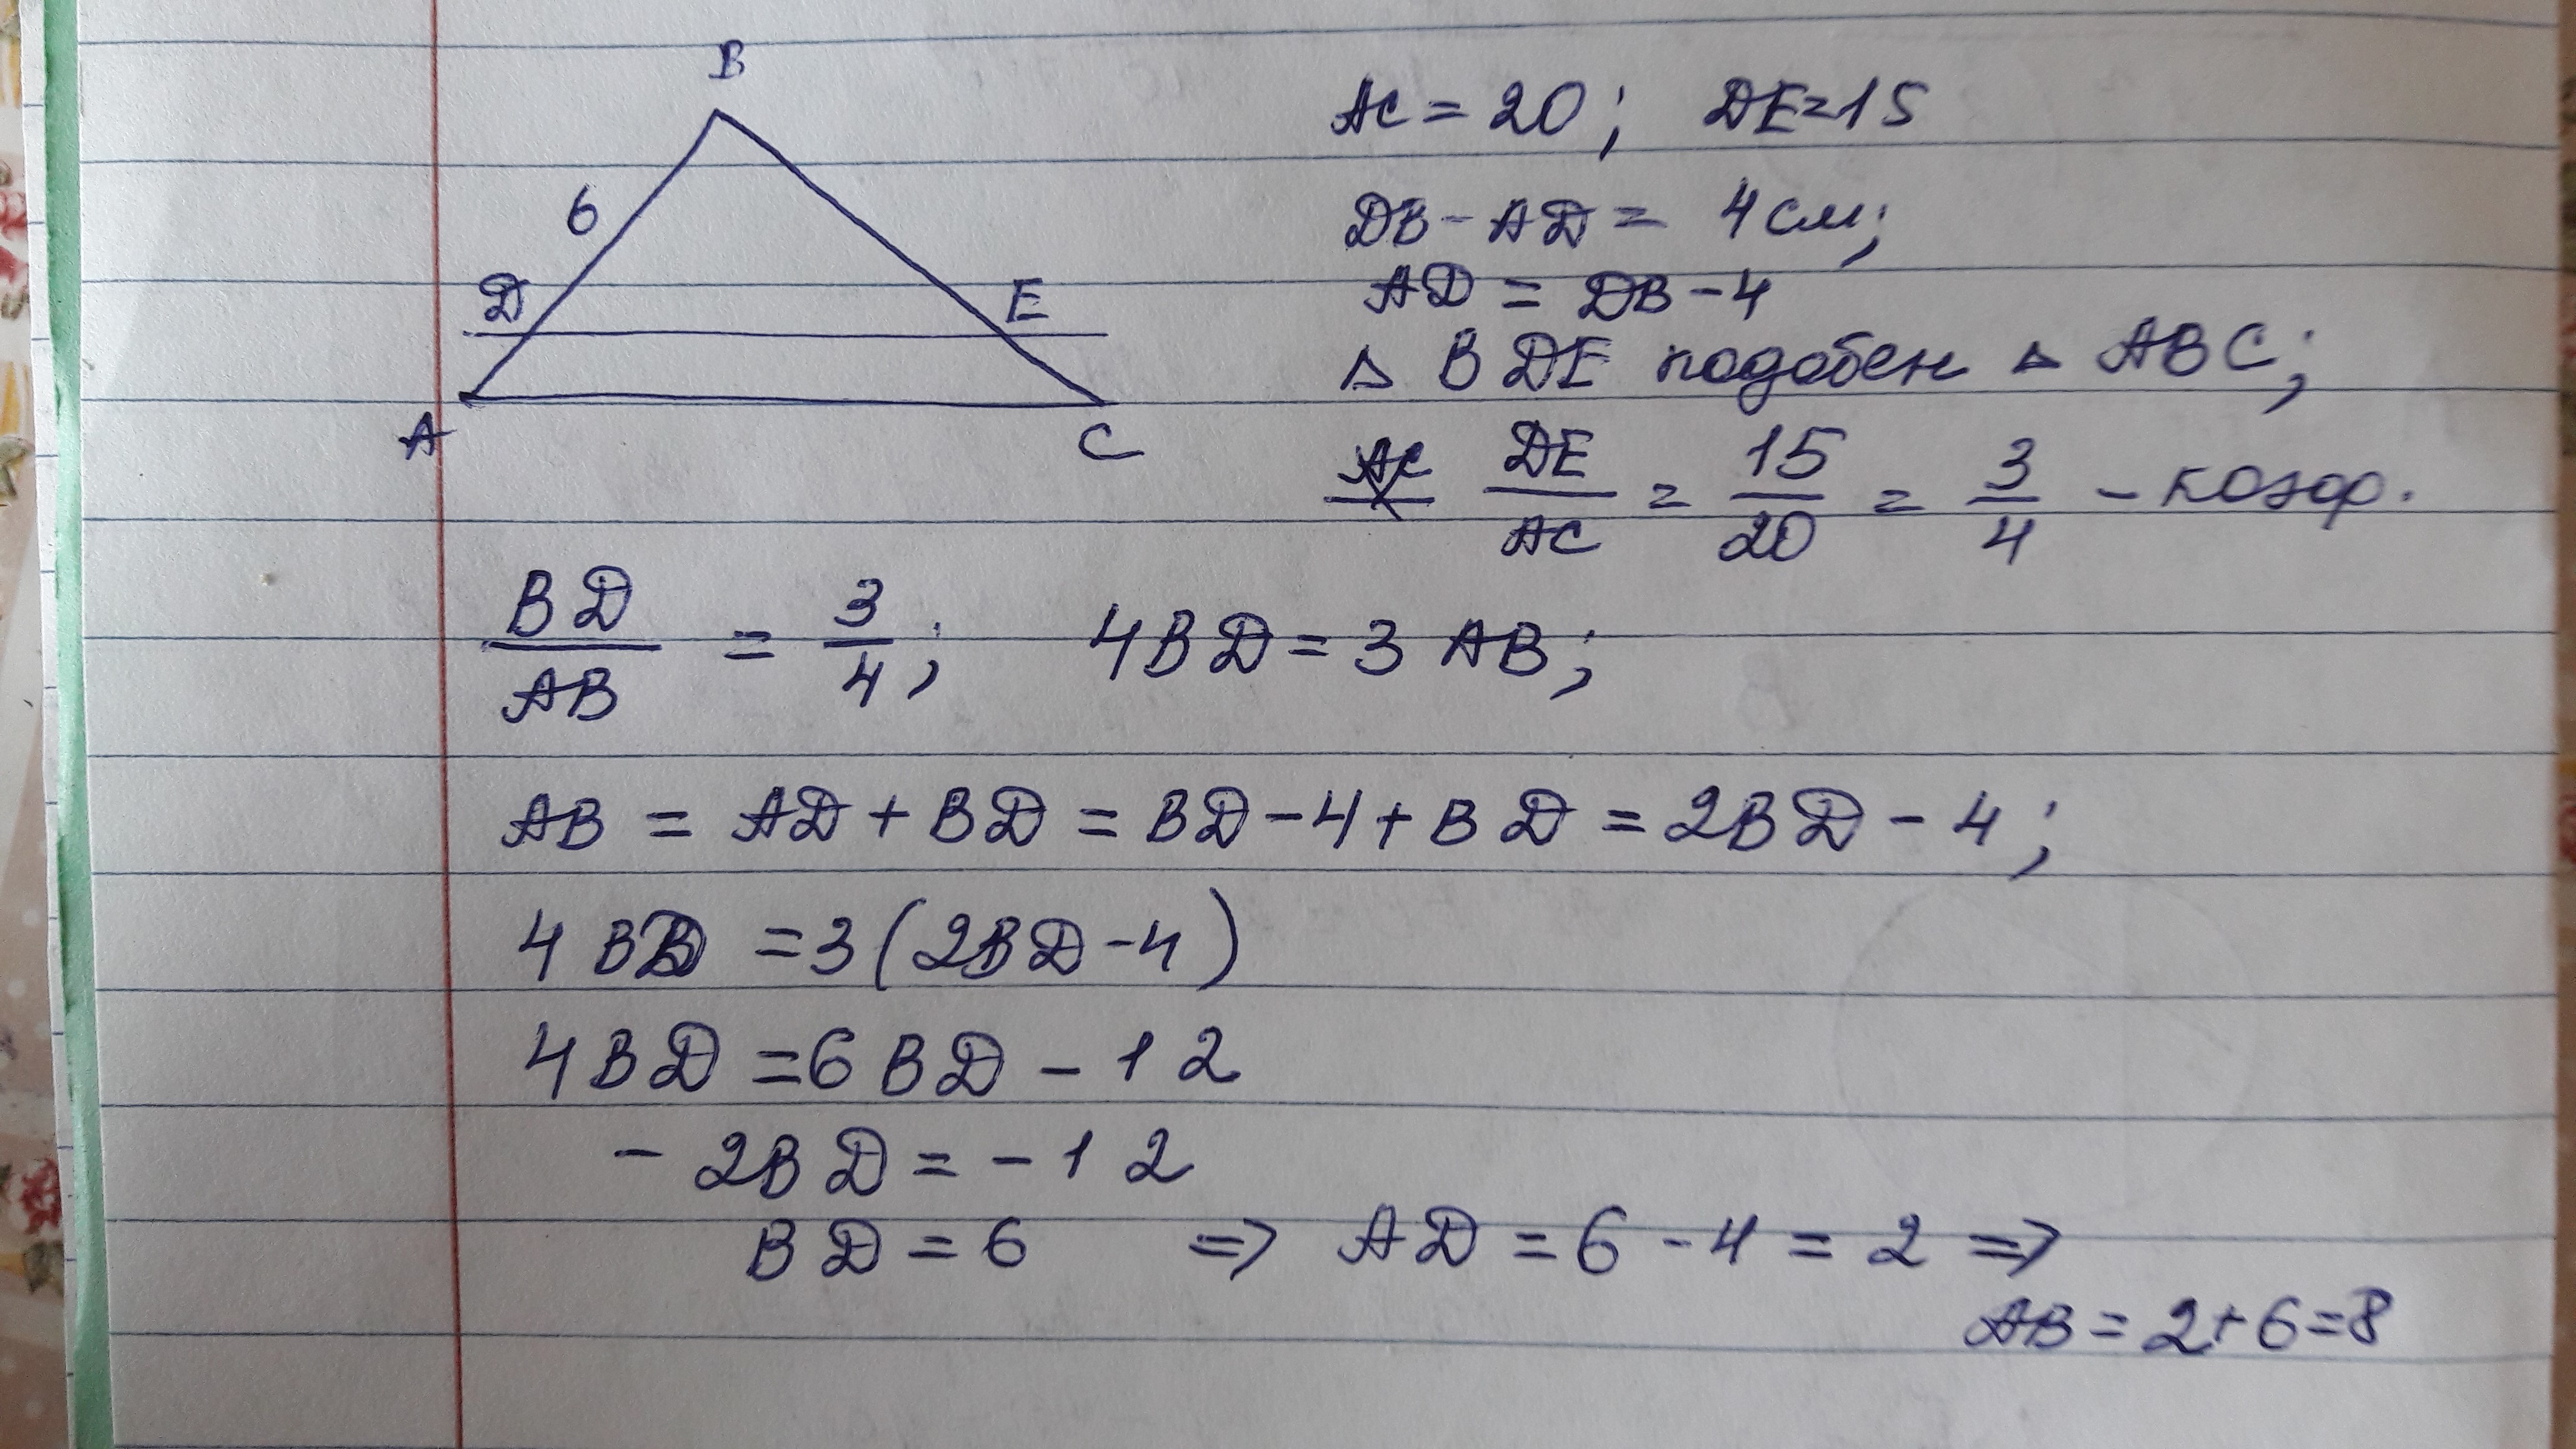 B
6
D E
A C
AC = 20; DE=15
DB - AD = 4 см;
AD = DB - 4
△ BDE подобен △ ABC;
DE/AC = 15/20 = 3/4 - коэф.
BD/AB = 3/4; 4BD = 3 AB;
AB = AD + BD = BD - 4 + BD = 2BD - 4;
4 BD = 3(2BD - 4)
4BD = 6 BD - 12
- 2BD = - 12
BD = 6 => AD = 6 - 4 = 2 =>
AB = 2+6=8